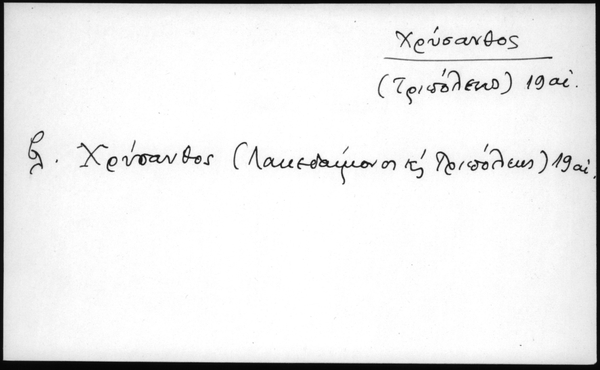 Χρύσανθος
(Τριπόλεως) 19 αἰ.
βλ. Χρύσανθος (Λακεδαίμονος κ̀ Τριπόλεως) 19 αἰ.